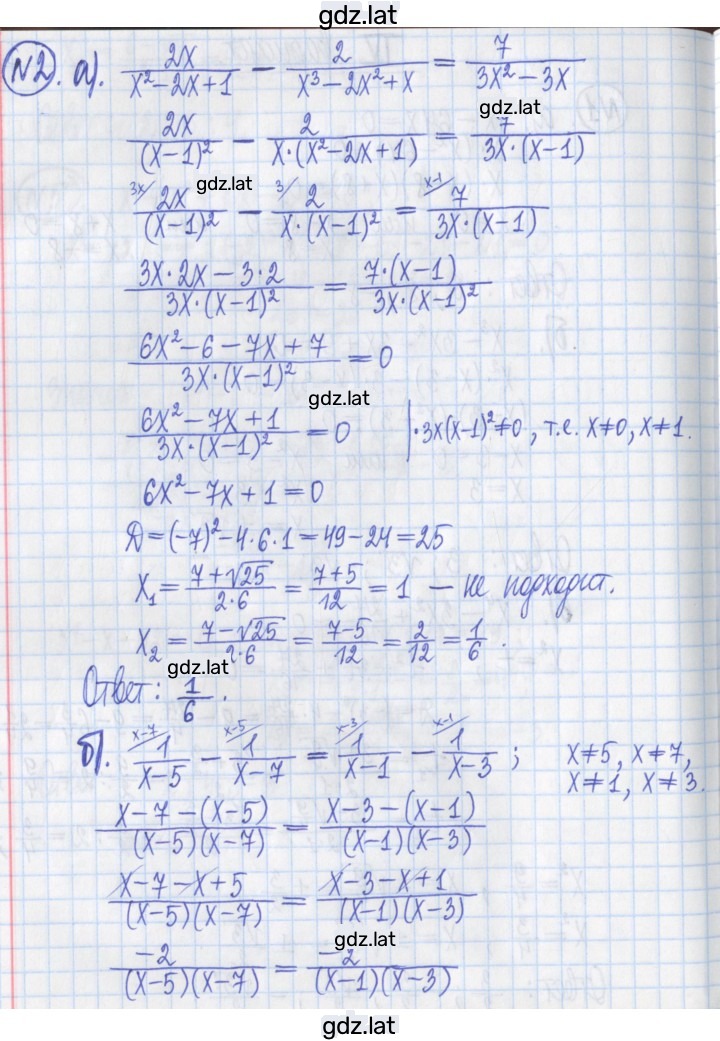 gdz.lat
№2. а). 2x/(x²-2x+1) - 2/(x³-2x²+x) = 7/(3x²-3x)
gdz.lat
2x/(x-1)² - 2/(x·(x²-2x+1)) = 7/(3x·(x-1))
gdz.lat
3x/ 2x/(x-1)² - 3/ 2/(x·(x-1)²) = x-1/ 7/(3x·(x-1))
(3x·2x-3·2)/(3x·(x-1)²) = 7·(x-1)/(3x·(x-1)²)
(6x²-6-7x+7)/(3x·(x-1)²) = 0
gdz.lat
(6x²-7x+1)/(3x·(x-1)²) = 0 |·3x(x-1)²≠0, т.е. x≠0, x≠1.
6x²-7x+1=0
Д=(-7)²-4·6·1=49-24=25
x₁ = (7+√25)/(2·6) = (7+5)/12 = 1 — не подходит.
x₂ = (7-√25)/(2·6) = (7-5)/12 = 2/12 = 1/6.
gdz.lat
Ответ: 1/6.
б). x-7/ 1/(x-5) - x-5/ 1/(x-7) = x-3/ 1/(x-1) - x-1/ 1/(x-3); x≠5, x≠7,
x≠1, x≠3.
(x-7-(x-5))/((x-5)(x-7)) = (x-3-(x-1))/((x-1)(x-3))
(x-7-x+5)/((x-5)(x-7)) = (x-3-x+1)/((x-1)(x-3))
gdz.lat
-2/((x-5)(x-7)) = -2/((x-1)(x-3))
gdz.lat